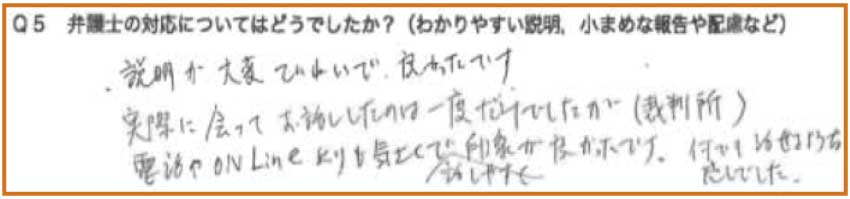 Q5 弁護士の対応についてはどうでしたか？（わかりやすい説明，小まめな報告や配慮など）
説明が大変ていねいで、良かったです
実際に会ってお話ししたのは一度だけでしたが（裁判所）
電話やONLineよりも気さくで印象が良かったです。何でも話せるような
話しやすく
感じでした。